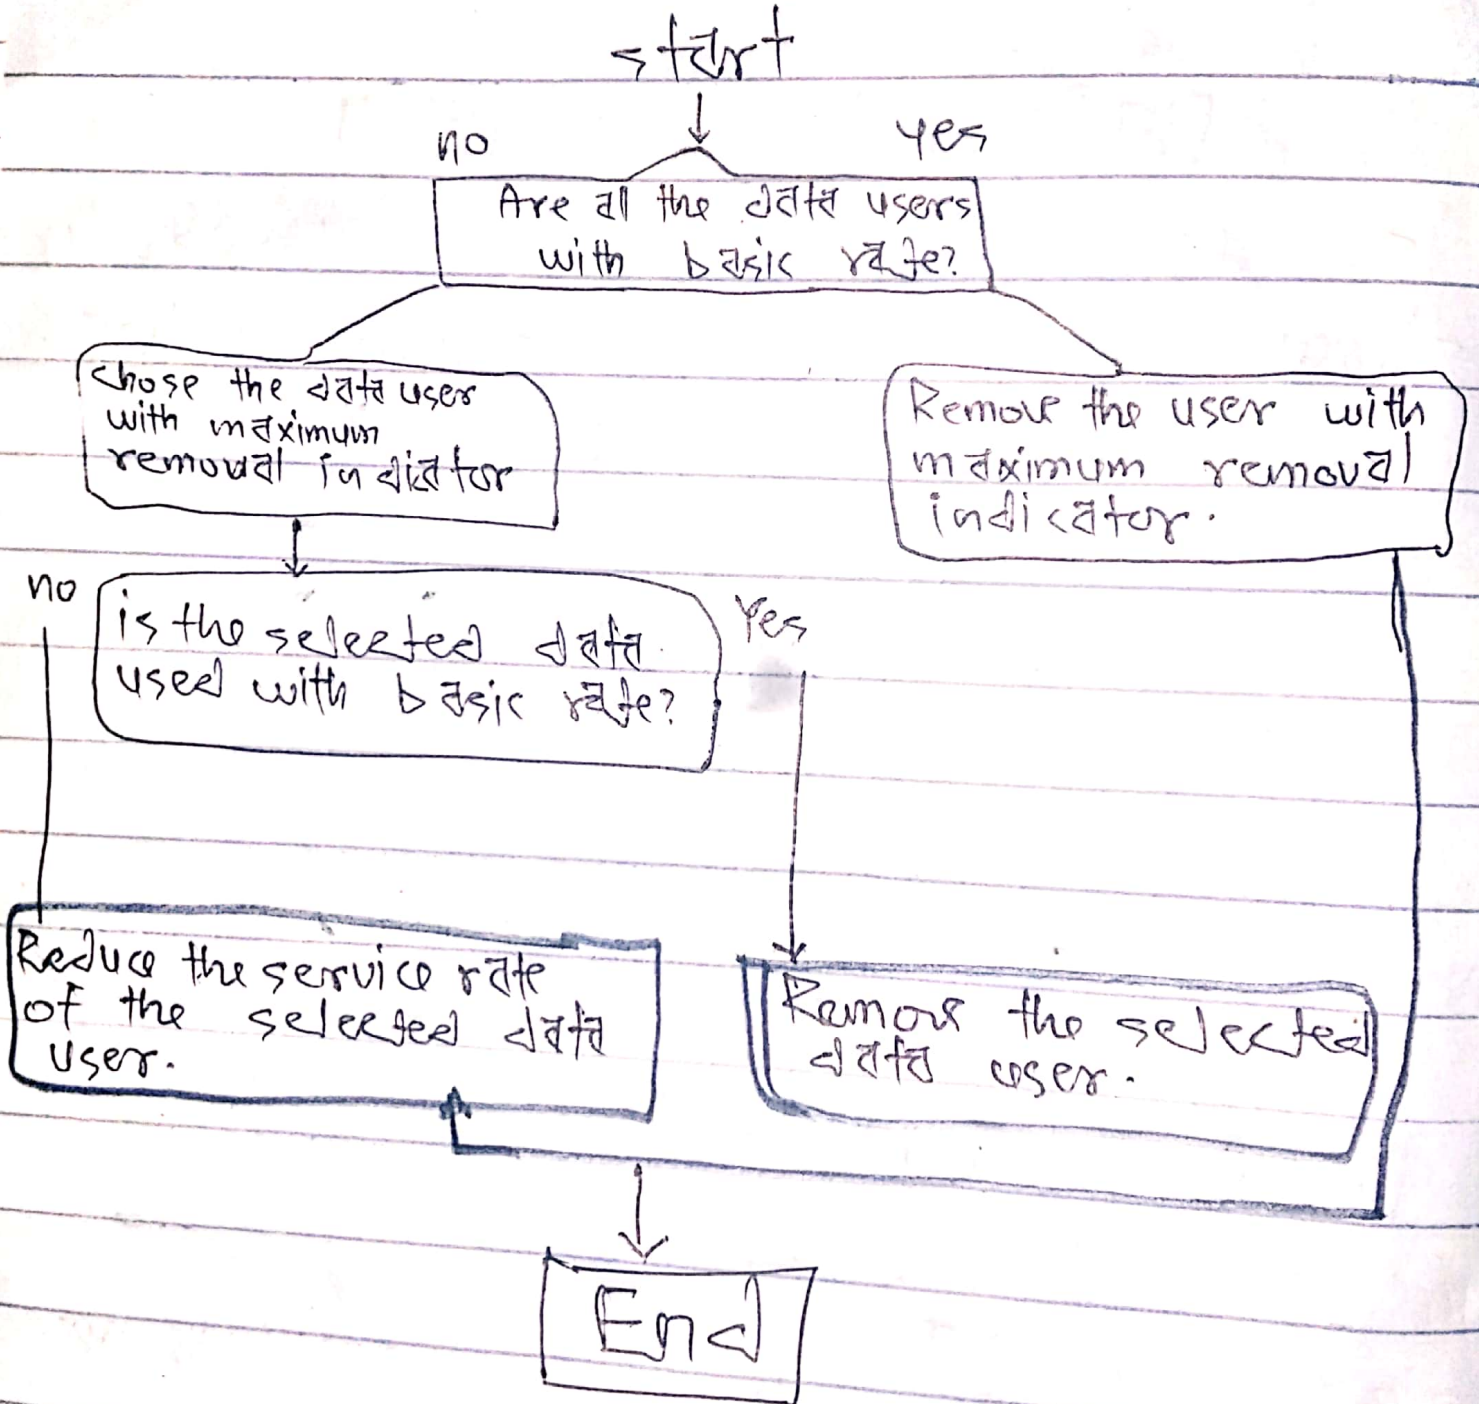 start
no
yes
Are all the data users
with basic rate?
chose the data user
with maximum
removal indiator
Remove the user with
maximum removal
indicator.
no
is the selected data
used with basic rate?
Yes
Reduce the service rate
of the selected data
user.
Remove the selected
data user.
End